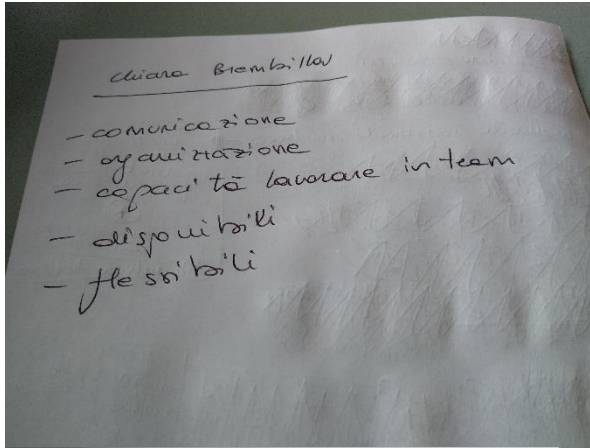 Chiara Brembilla
- comunicazione
- organizzazione
- capacità lavorare in team
- disponibili
- flessibili